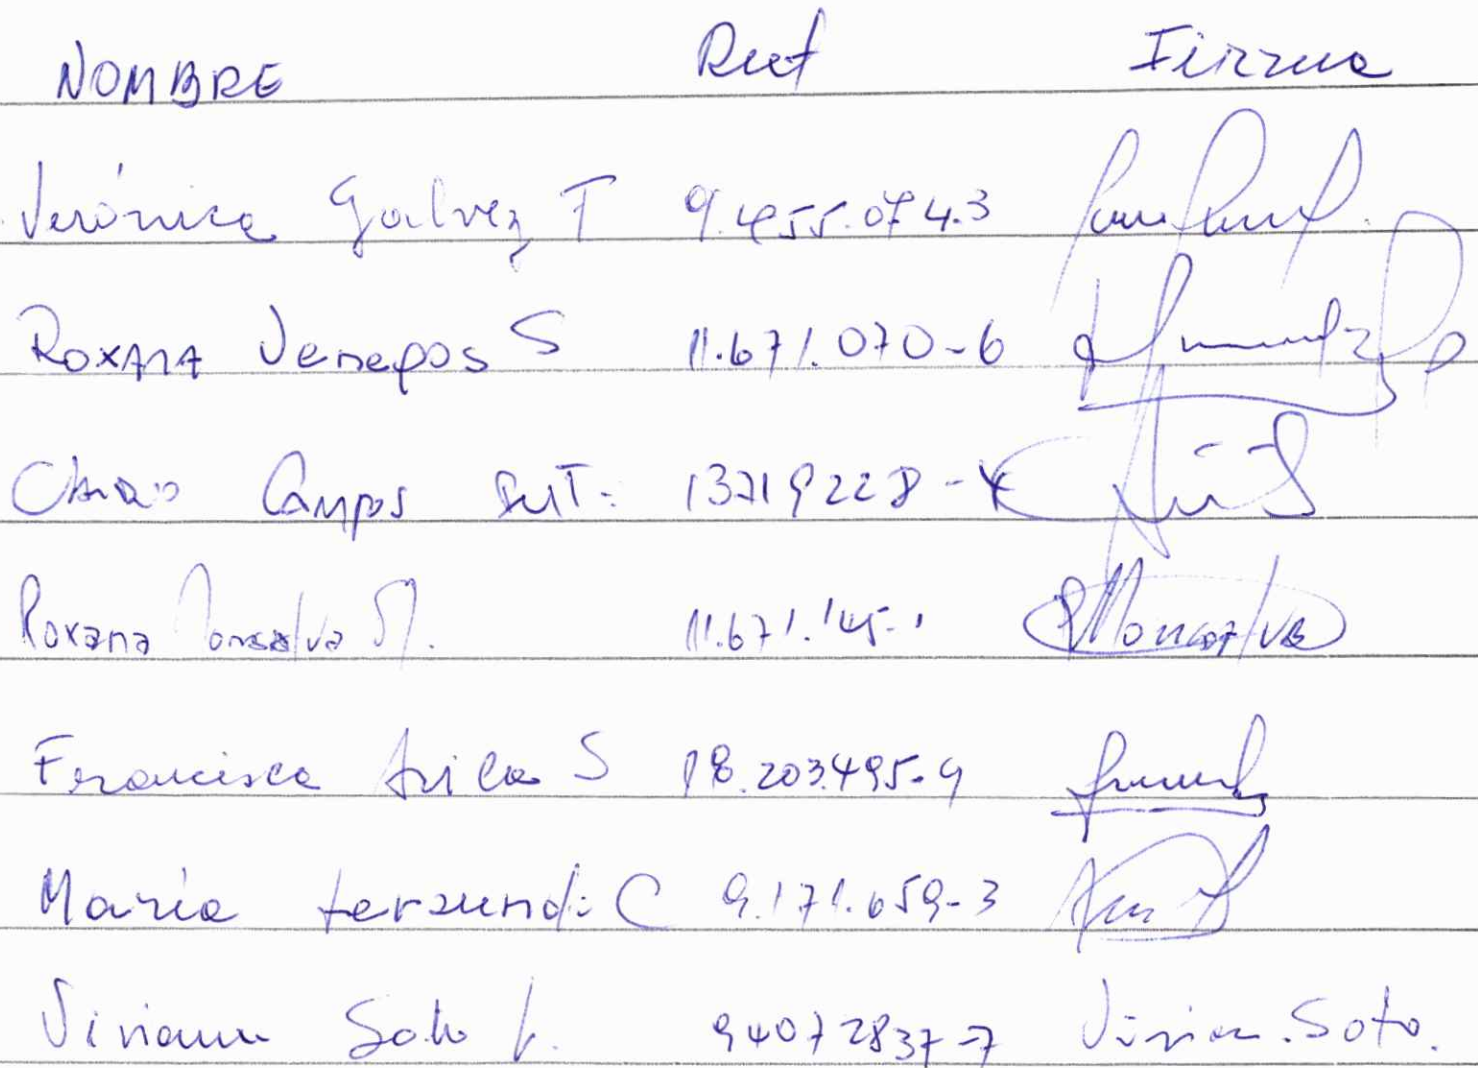 NOMBRE Rut Firma
Verónica Galvez F 9.455.074.3
Roxana Venegos S 11.671.070-6
Campos RUT: 13719228-4
Roxana Monsalva M. 11.671.145-1 RMonsalva
Francisca Avila S 18.203.495-9
Maria C 9.171.659-3
Viviana Soto 94072837-7 Vivian.Soto.